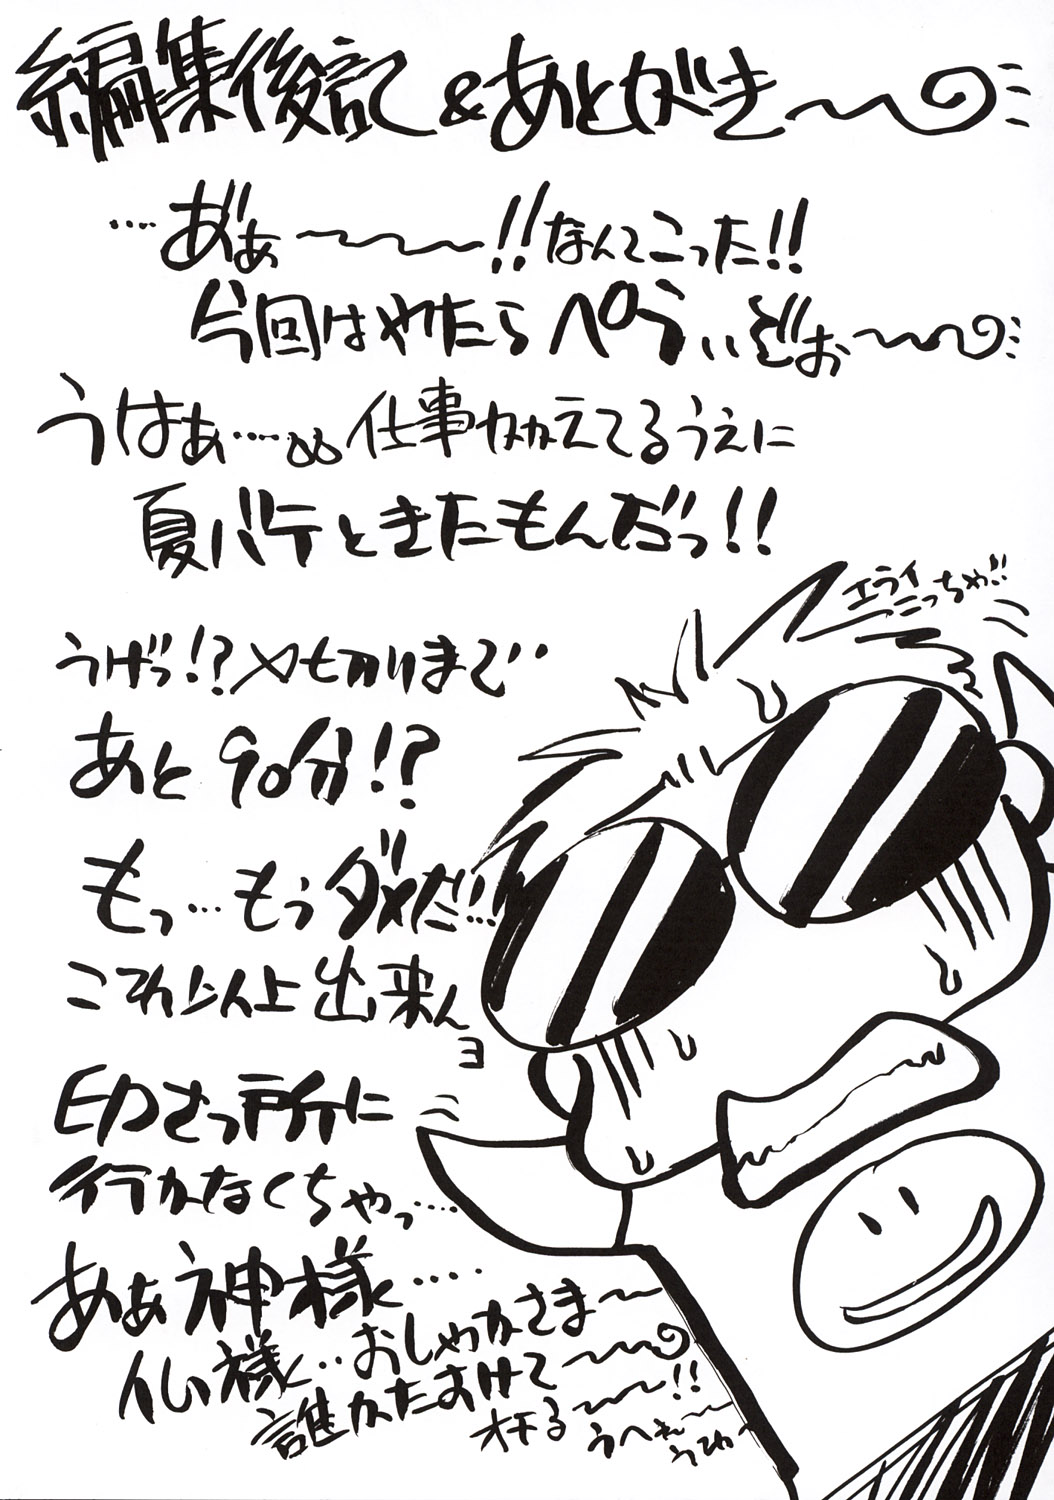 編集後記&あとがき〜
‥‥あ゛ぁ〜〜〜!!なんてこった!!
今回はやたらペラいぞぉ〜〜
うはぁ‥‥。。仕事かかえてるうえに
夏バテときたもんだっ!!
エライ
こっちゃ!!
うげっ!?〆切りまで‥
あと90分!?
もっ‥‥もうダメだ‥‥
これ以上出来ん
ヨ
印さつ所に
行かなくちゃっ‥‥
あぁ神様‥‥
仏様‥おしゃかさま〜
誰かたすけて〜〜
オチる〜〜!!
うへぇ〜